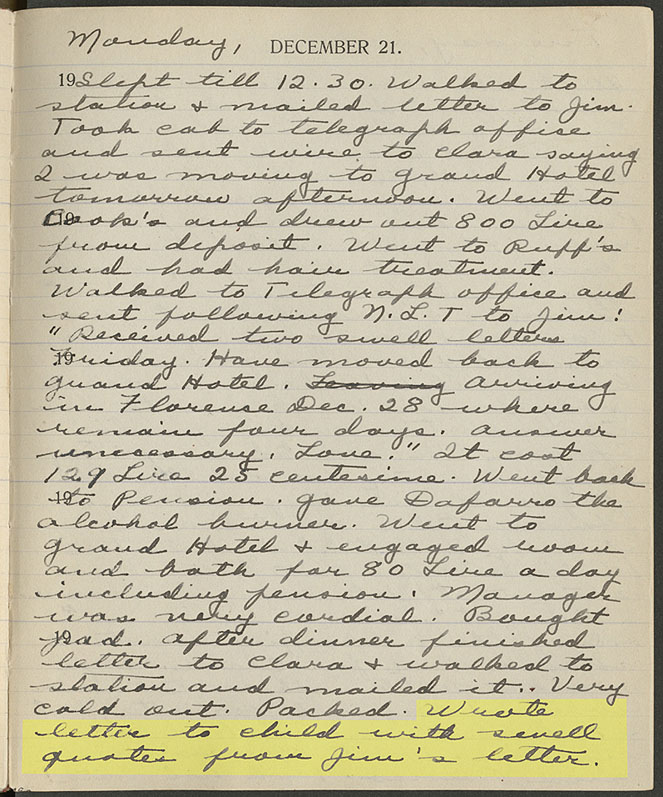 Monday, DECEMBER 21.
19 Slept till 12.30. Walked to
station & mailed letter to Jim.
Took cab to telegraph office
and sent wire to Clara saying
I was moving to Grand Hotel
tomorrow afternoon. Went to
19 Cook's and drew out 800 Lire
from deposit. Went to Ruff's
and had hair treatment.
Walked to Telegraph office and
sent following N.L.T to Jim:
"Received two swell letters
19 Friday. Have moved back to
Grand Hotel. Leaving Arriving
in Florence Dec. 28 where
remain four days. Answer
unecessary. Love." It cost
129 Lire 25 centesime. Went back
19 to Pension. Gave Dafarro the
alcohol burner. Went to
Grand Hotel & engaged room
and bath for 80 Lire a day
including pension. Manager
was very cordial. Bought
19 pad. After dinner finished
letter to Clara & walked to
station and mailed it. Very
cold out. Packed. Wrote
letter to child with swell
quotes from Jim's letter.